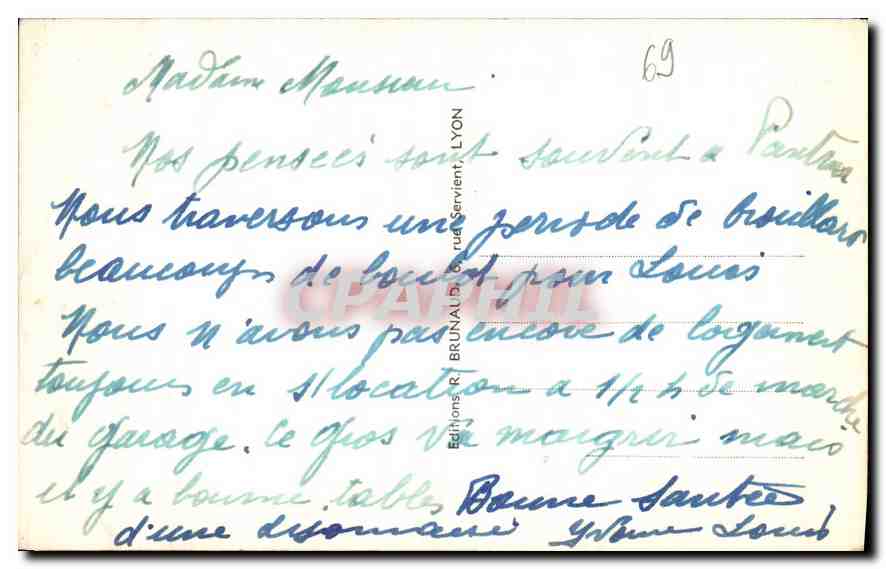 69
Madame Monsieur
Nos pensées sont souvent a Pantin
Nous traversons une periode de brouillard
beaucoup de boulot pour Louis
Nous n'avons pas encore de logement
toujours en s/location a 1/2 h de marche
du garage. Ce gros va maigrir mais
il y a bonne tables Bonne Santée
d'une Yvonne Louis
Editions R. BRUNAUD, 6, rue Servient, LYON
CPAPHIL